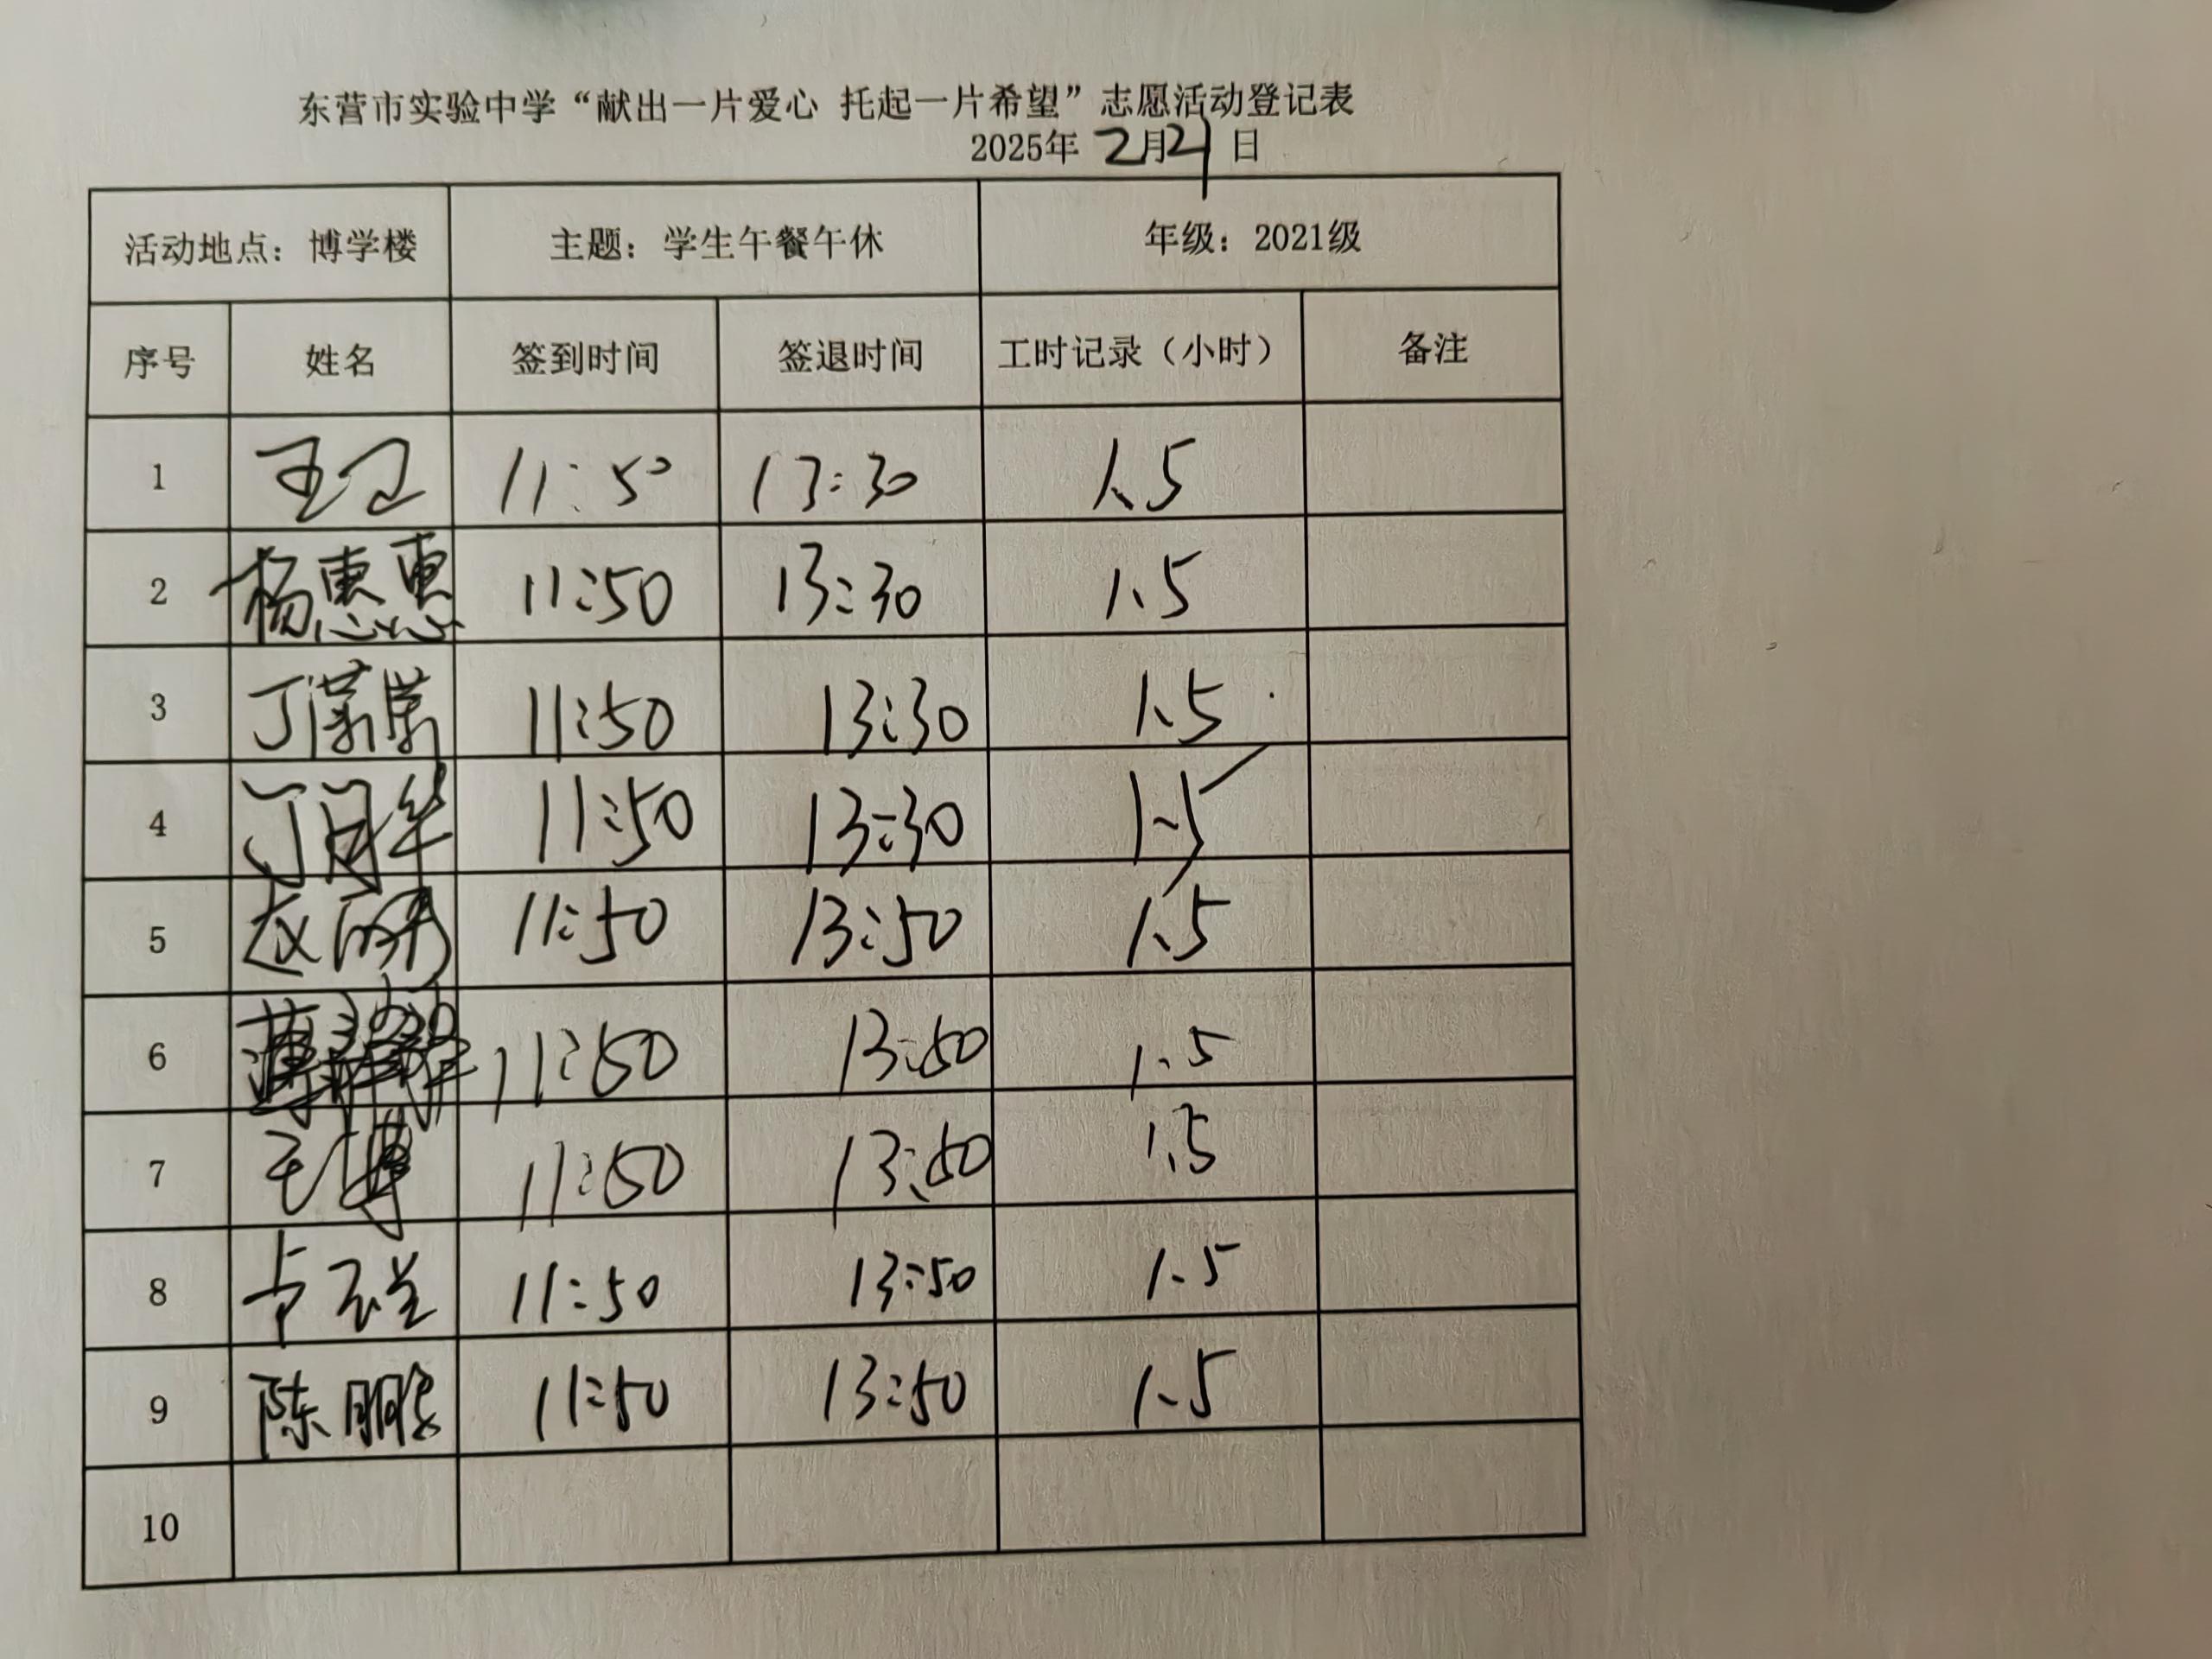 东营市实验中学“献出一片爱心 托起一片希望”志愿活动登记表
2025年 2月21日
活动地点：博学楼 主题：学生午餐午休 年级：2021级
序号 姓名 签到时间 签退时间 工时记录（小时） 备注
1 王卫 11:50 13:30 1.5
2 杨惠惠 11:50 13:30 1.5
3 丁 11:50 13:30 1.5
4 丁月华 11:50 13:30 1.5
5 赵丽 11:50 13:50 1.5
6 11:50 13:50 1.5
7 王博 11:50 13:50 1.5
8 11:50 13:50 1.5
9 陈鹏 11:50 13:50 1.5
10